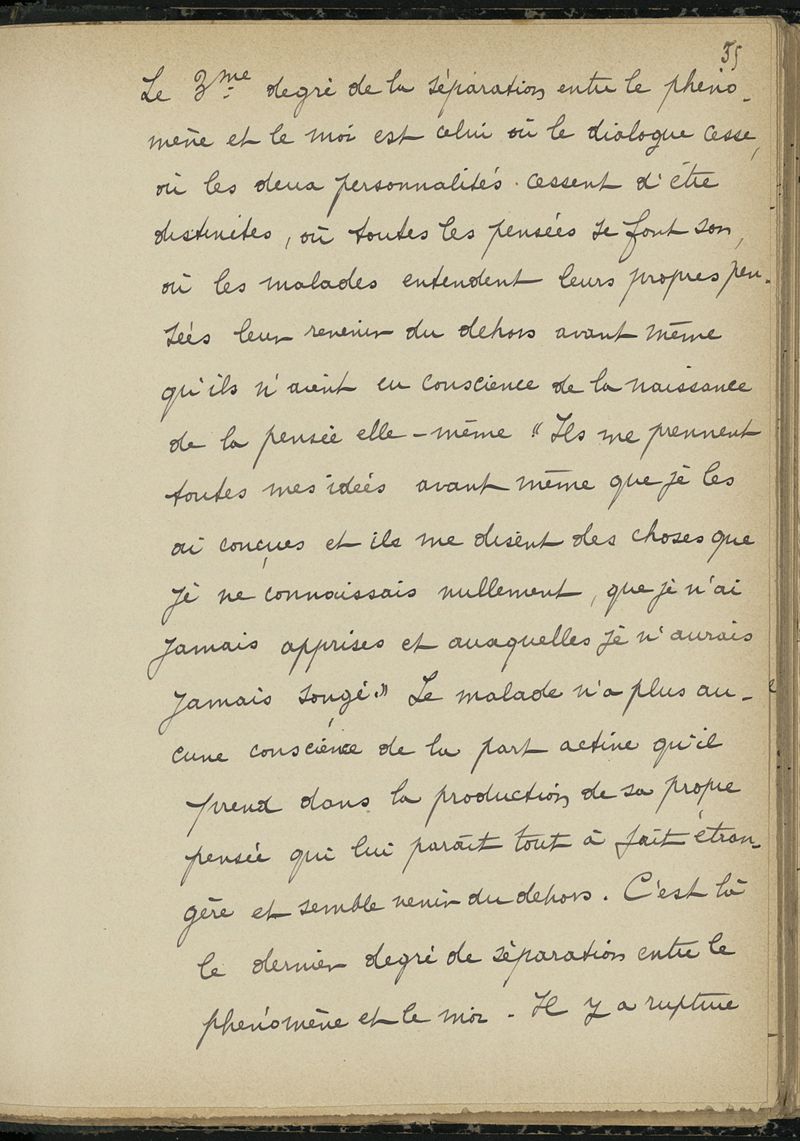 35
Le 3me degré de la séparation entre le phéno-
mène et le moi est celui où le dialogue cesse,
où les deux personnalités cessent d'être
distinctes, où toutes les pensées se font son,
où les malades entendent leurs propres pen-
sées leur revenir du dehors avant même
qu'ils n'aient eu conscience de la naissance
de la pensée elle-même "Ils me prennent
toutes mes idées avant même que je les
ai conçues et ils me disent des choses que
je ne connaissais nullement, que je n'ai
jamais apprises et auxquelles je n'aurais
jamais songé." Le malade n'a plus au-
cune conscience de la part active qu'il
prend dans la production de sa propre
pensée qui lui paraît tout à fait étran-
gère et semble venir du dehors. C'est là
le dernier degré de séparation entre le
phénomène et le moi. Il y a rupture